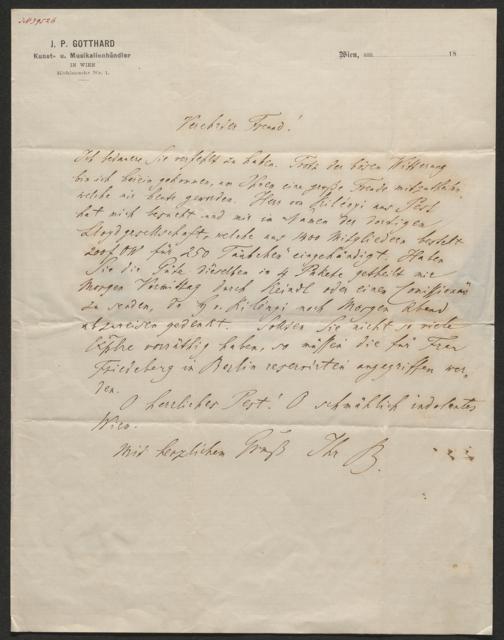 J. P. GOTTHARD
Kunst- u. Musikalienhändler
IN WIEN
Kohlmarkt Nr. 1.
Wien, am 18
Verehrter Freund!
Ich bedaure Sie verfehlt zu haben. Trotz der bösen Witterung
bin ich herein gekommen, um Ihnen eine große Freude mitzutheilen,
welche mir heute geworden. Herr von aus Pest
hat mich besucht und mir im Namen der dortigen
Lloydgesellschaft, welche aus 1400 Mitgliedern besteht
200 f ÖW für 250 eingehändigt. Haben
Sie die Güte dieselben in 4 Pakete getheilt mir
Morgen Vormittag durch oder einen Comissionär
zu senden, da H v. noch Morgen Abend
abzureisen gedenkt. Sollten Sie nicht so viele
Exphre vorräthig haben, so müssen die für Frau
Friedeberg in Berlin reservirten angegriffen wer-
den.
O herrliches Pest! O schmählich indolentes
Wien.
Mit herzlichem Gruß Ihr B.